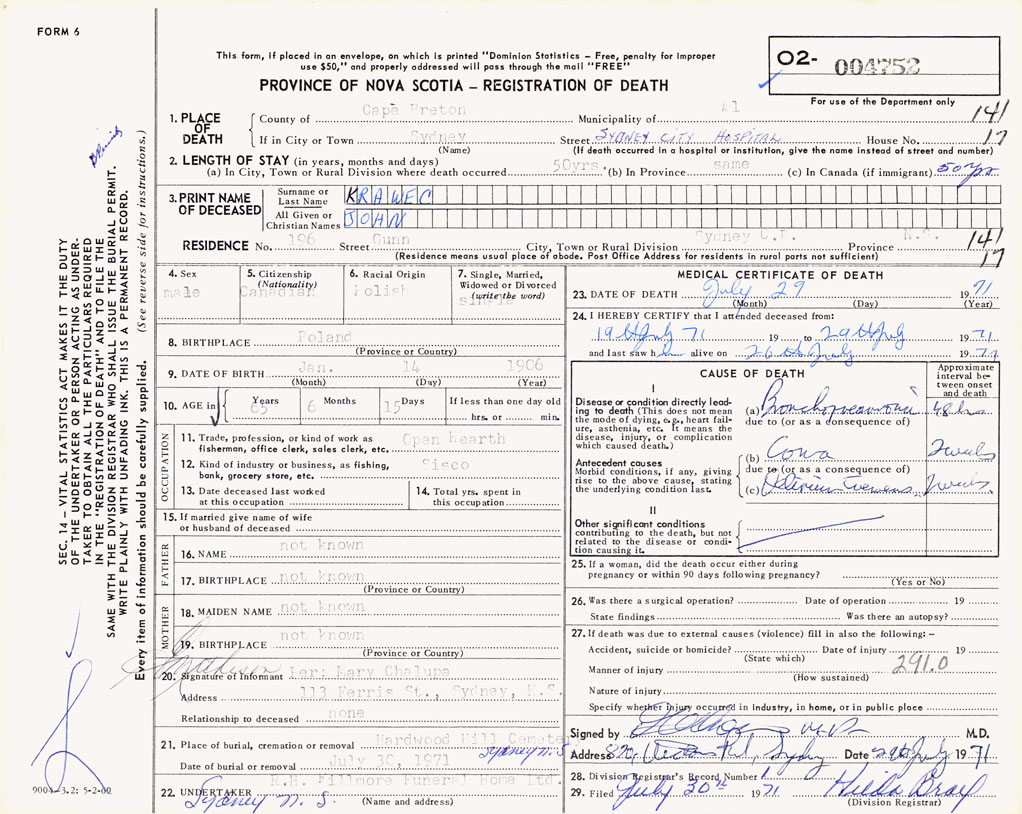 FORM 6
This form, if placed in an envelope, on which is printed "Dominion Statistics – Free, penalty for improper
use $50," and properly addressed will pass through the mail "FREE"
PROVINCE OF NOVA SCOTIA – REGISTRATION OF DEATH
02- 004752
For use of the Department only
141
17
1. PLACE OF DEATH
County of Cape Breton Municipality of #1
If in City or Town Sydney Street SYDNEY CITY HOSPITAL House No.
(Name) (If death occurred in a hospital or institution, give the name instead of street and number)
2. LENGTH OF STAY (in years, months and days)
(a) In City, Town or Rural Division where death occurred 50yrs. (b) In Province same (c) In Canada (if immigrant) 50 yrs
3. PRINT NAME OF DECEASED
Surname or Last Name KRAWEC
All Given or Christian Names JOHN
RESIDENCE No. 196 Street Gunn City, Town or Rural Division Sydney C.B. Province N.S.
(Residence means usual place of abode. Post Office Address for residents in rural parts not sufficient)
141
17
4. Sex male
5. Citizenship (Nationality) Canadian
6. Racial Origin Polish
7. Single, Married, Widowed or Divorced (write the word) single
8. BIRTHPLACE Poland
(Province or Country)
9. DATE OF BIRTH Jan. 14 1906
(Month) (Day) (Year)
10. AGE in Years 65 6 Months 15 Days If less than one day old
hrs. or min.
OCCUPATION
11. Trade, profession, or kind of work as fisherman, office clerk, sales clerk, etc. Open hearth
12. Kind of industry or business, as fishing, bank, grocery store, etc. Sisco
13. Date deceased last worked at this occupation
14. Total yrs. spent in this occupation
15. If married give name of wife or husband of deceased
FATHER
16. NAME not known
17. BIRTHPLACE not known
(Province or Country)
MOTHER
18. MAIDEN NAME not known
19. BIRTHPLACE not known
(Province or Country)
20. Signature of Informant Per: Mary Chalupa
Address 113 Ferris St., Sydney, N.S.
Relationship to deceased none
21. Place of burial, cremation or removal Hardwood Hill Cemetery
Sydney N.S
Date of burial or removal July 30, 1971
22. UNDERTAKER E.H. Fillmore Funeral Home Ltd.
Sydney N. S. (Name and address)
MEDICAL CERTIFICATE OF DEATH
23. DATE OF DEATH July 29 1971
(Month) (Day) (Year)
24. I HEREBY CERTIFY that I attended deceased from:
19th July 71 19 to 29th July 1971
and last saw him alive on 26th July 1971
CAUSE OF DEATH
Approximate interval between onset and death
I
Disease or condition directly leading to death (This does not mean the mode of dying, e.g., heart failure, asthenia, etc. It means the disease, injury, or complication which caused death.)
(a) Bronchopneumonia 48 hrs
due to (or as a consequence of)
Antecedent causes
Morbid conditions, if any, giving rise to the above cause, stating the underlying condition last.
(b) Coma 2 weeks
due to (or as a consequence of)
(c) Delirium Tremens 2 weeks
II
Other significant conditions
contributing to the death, but not related to the disease or condition causing it.
25. If a woman, did the death occur either during
pregnancy or within 90 days following pregnancy?
(Yes or No)
26. Was there a surgical operation? Date of operation 19
State findings Was there an autopsy?
27. If death was due to external causes (violence) fill in also the following: –
Accident, suicide or homicide? Date of injury 19
(State which)
291.0
Manner of injury
(How sustained)
Nature of injury
Specify whether injury occurred in industry, in home, or in public place
Signed by M.D.
Address Sydney Date 29th July 1971
28. Division Registrar's Record Number 1
29. Filed July 30th 1971 Hilda Bray
(Division Registrar)
SEC. 14 – VITAL STATISTICS ACT MAKES IT THE DUTY
OF THE UNDERTAKER OR PERSON ACTING AS UNDER-
TAKER TO OBTAIN ALL THE PARTICULARS REQUIRED
IN THE "REGISTRATION OF DEATH" AND TO FILE THE
SAME WITH THE DIVISION REGISTRAR WHO SHALL ISSUE THE BURIAL PERMIT.
WRITE PLAINLY WITH UNFADING INK. THIS IS A PERMANENT RECORD.
Every item of information should be carefully supplied. (See reverse side for instructions.)
9004-3.2: 5-2-62